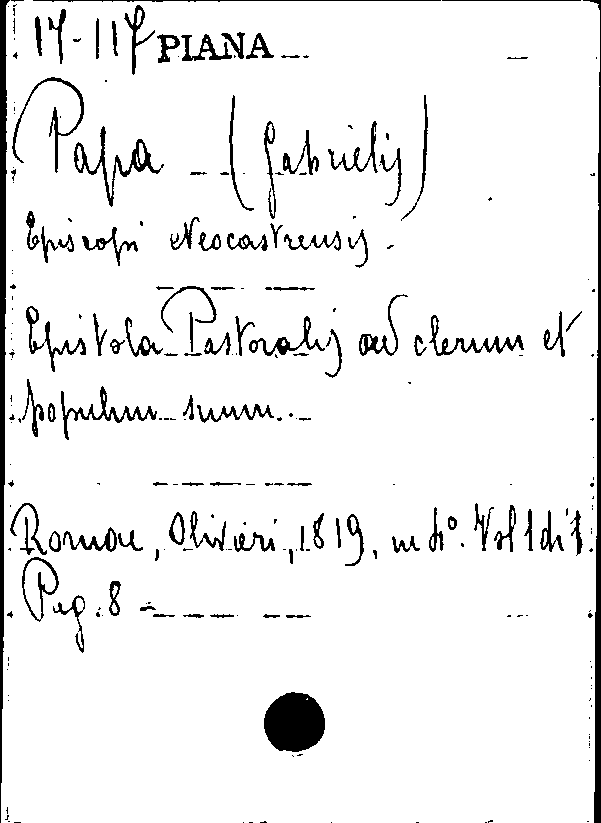 17-117 PIANA
Papa (Gabrielis)
Episcopi Neocastrensis.
Epistola Pastoralis ad clerum et
populum suum.
Romae, Olivieri, 1819, in 4°. Vol 1 di 1
Pag. 8